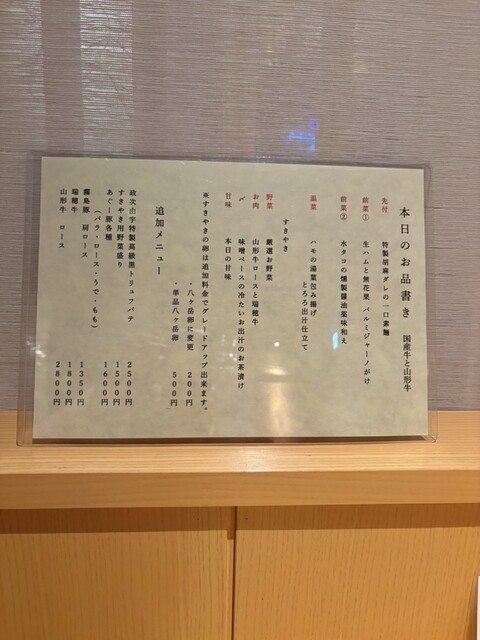 本日のお品書き 国産牛と山形牛
先付 特製胡麻ダレの一口素麺
前菜① 生ハムと無花果 パルミジャーノがけ
前菜② 水タコの燻製醤油薬味和え
温菜 ハモの湯葉包み揚げ
とろろ出汁仕立て
すきやき
野菜 厳選お野菜
お肉 山形牛ロースと瑞穂牛
〆 味噌ベースの冷たいお出汁のお茶漬け
甘味 本日の甘味
※すきやきの卵は追加料金でグレードアップ出来ます。
・八ヶ岳卵に変更 200円
・単品八ヶ岳卵 500円
追加メニュー
政次由宇特製高級黒トリュフパテ 2500円
すきやき用野菜盛り 1500円
あぐー豚各種 1600円
(バラ・ロース・うで・もも)
霧島豚 肩ロース 1350円
瑞穂牛 1800円
山形牛 ロース 2800円